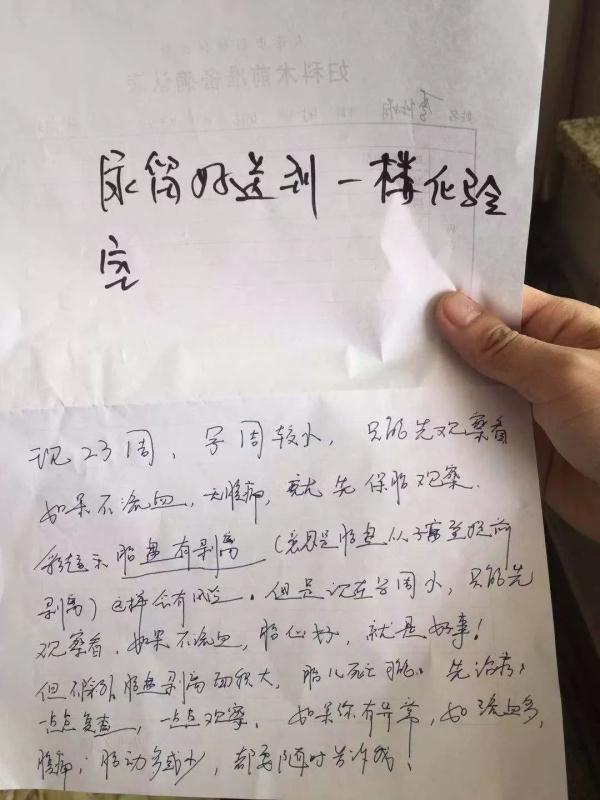 妇科术前准备确认表
姓名
尿留好送到一楼化验
室
现23周，孕周较小，只能先观察着
如果不流血，无腹痛，就先保胎观察.
彩超示胎盘有剥离（意思是胎盘从子宫壁提前
剥离）这样会有风险。但是现在孕周小，只能先
观察着，如果不流血，胎心好，就是好事！
但不除外胎盘剥离面积大，胎儿死亡可能。先治疗，
一点点复查，一点点观察。如果你有异常，如流血多，
腹痛，胎动多或少，都要随时告诉我！